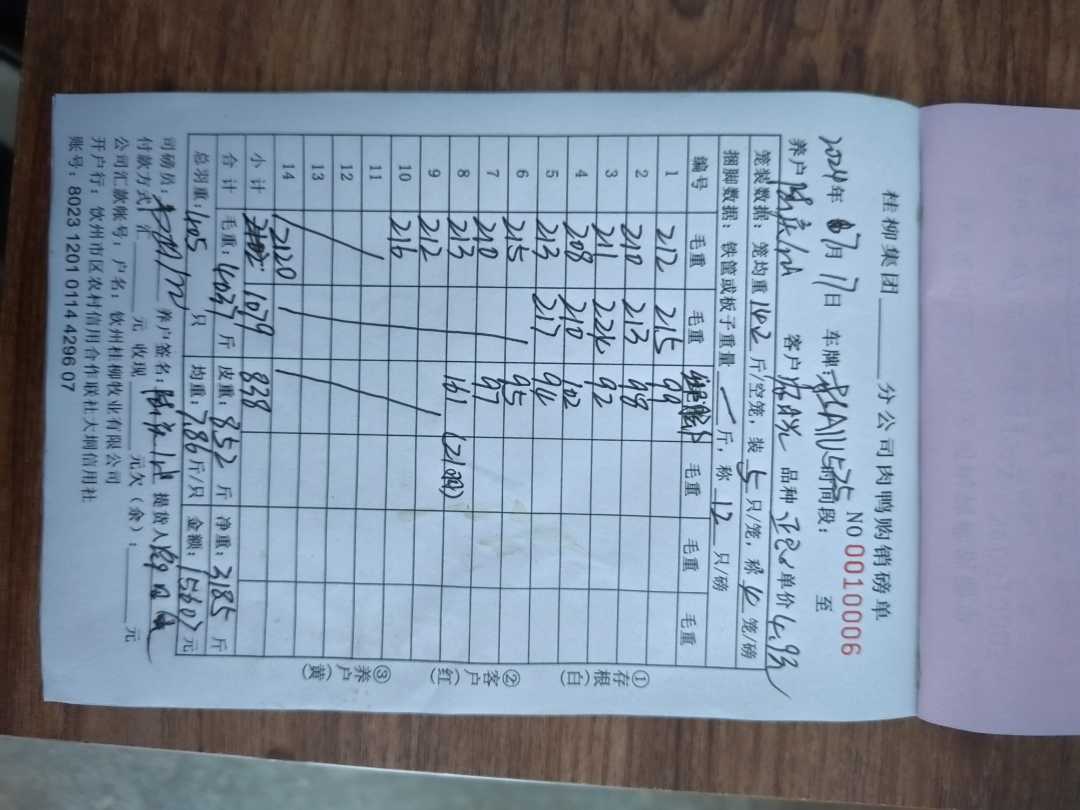 桂柳集团______分公司肉鸭购销磅单
NO 0010006
2024年 7月 17日 车牌: 时间段: 至
养户 客户 品种 单价 4.93
笼装数据:笼均重 14.2 斤/空笼,装 5 只/笼,称 笼/磅
捆脚数据:铁筐或板子重量 一 斤,称 12 只/磅
编号 毛重 毛重 毛重 毛重 毛重
1 212 215 99
2 210 213 98
3 211 224 92
4 208 210 102
5 213 217 94
6 215 95
7 210 97
8 213 161 (21只)
9 212
10 216
11
12
13
14 2120
小计 1079 838
合计 毛重:4037 斤 皮重:852 斤 净重:3185 斤
总羽重:405 只 均重:7.86 斤/只 金额:15607 元
司磅员: 养户签名: 提货人
付款方式:汇______元 收现______元欠(余):______元
公司汇款账号:户名:钦州桂柳牧业有限公司
开户行:钦州市区农村信用合作联社大垌信用社
账号:8023 1201 0114 4296 07
①存根(白)
②客户(红)
③养户(黄)